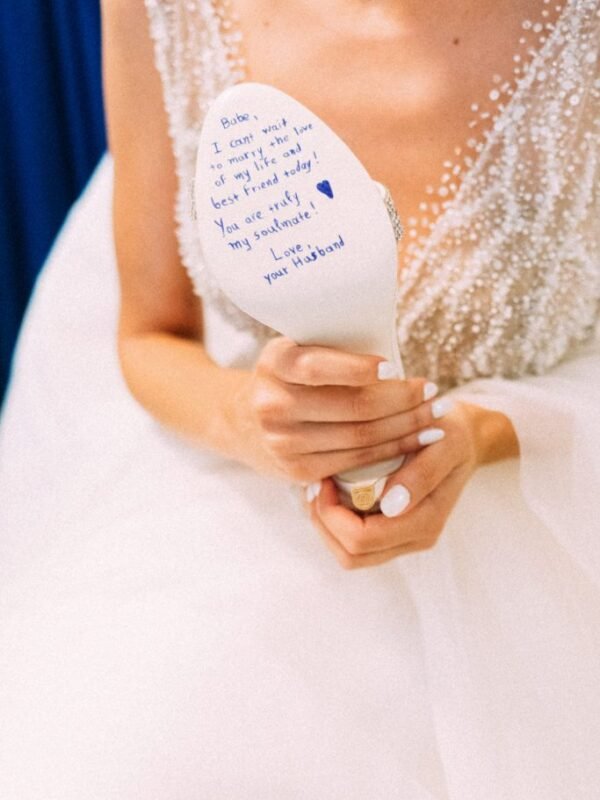 Babe,
I cant wait
to marry the love
of my life and
best friend today!
You are truly
my soulmate!
Love,
your Husband